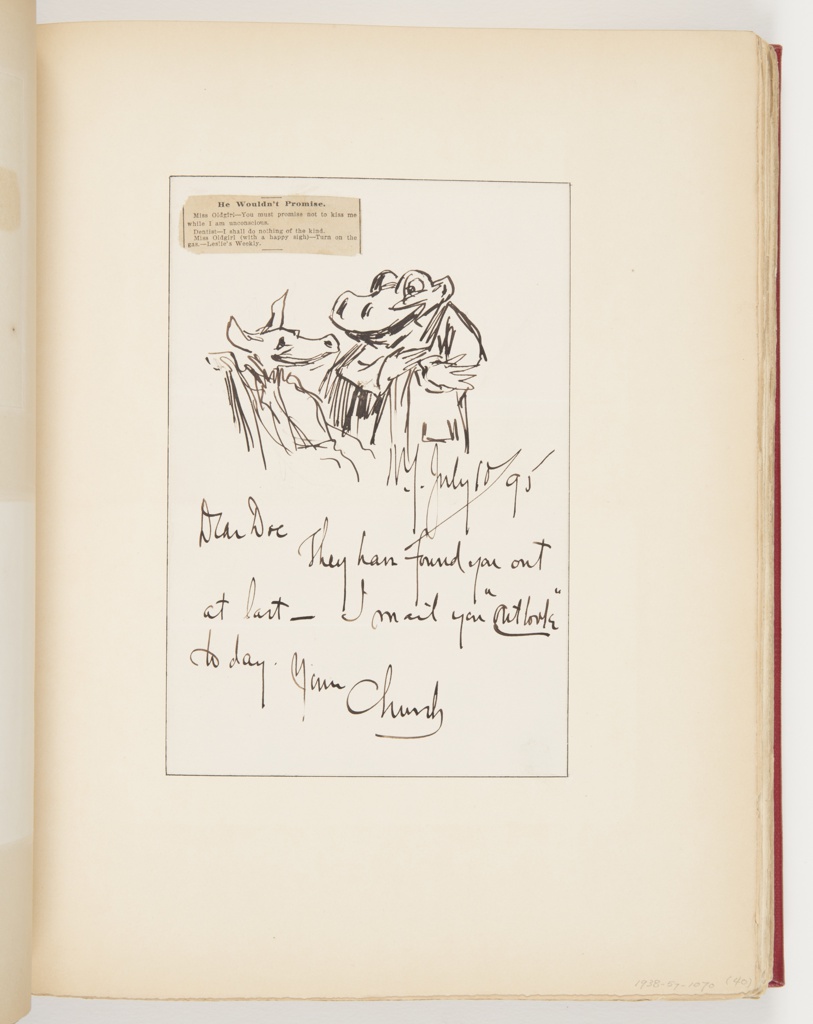 He Wouldn't Promise.
Miss Oldgirl—You must promise not to kiss me
while I am unconscious.
Dentist—I shall do nothing of the kind.
Miss Oldgirl (with a happy sigh)—Turn on the
gas.—Leslie's Weekly.
N.Y. July 10/95
Dear Doc
They have found you out
at last — I mail you "Outlook"
to day. Yours
Church
1938-57-1070 (40)